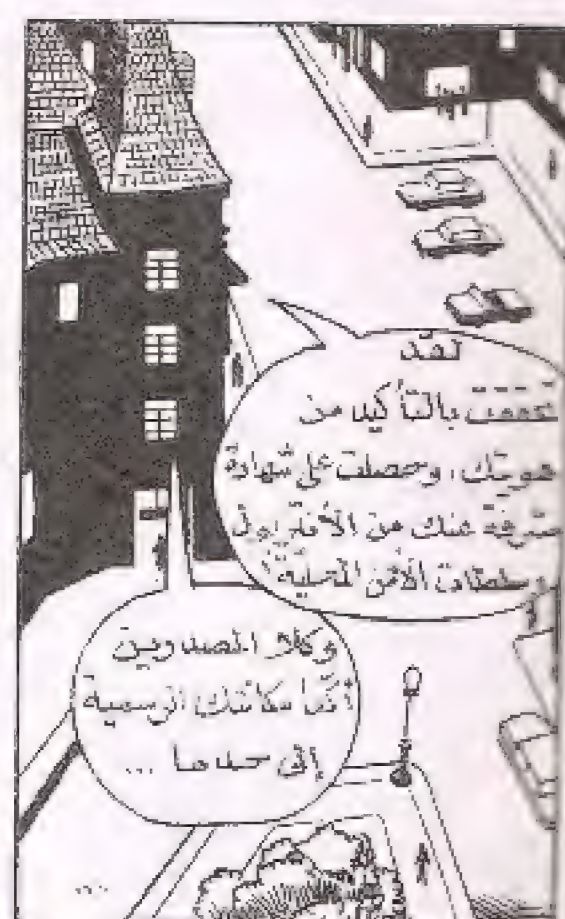 لقد
تحققت بالتأكيد من
هويتك، وحصلت على شهادة
مشرفة عنك من الأنتربول
وسلطات الأمن المحلية!
وكلا المصدرين
أكدا مكانتك الرسمية
إلى حد ما ...